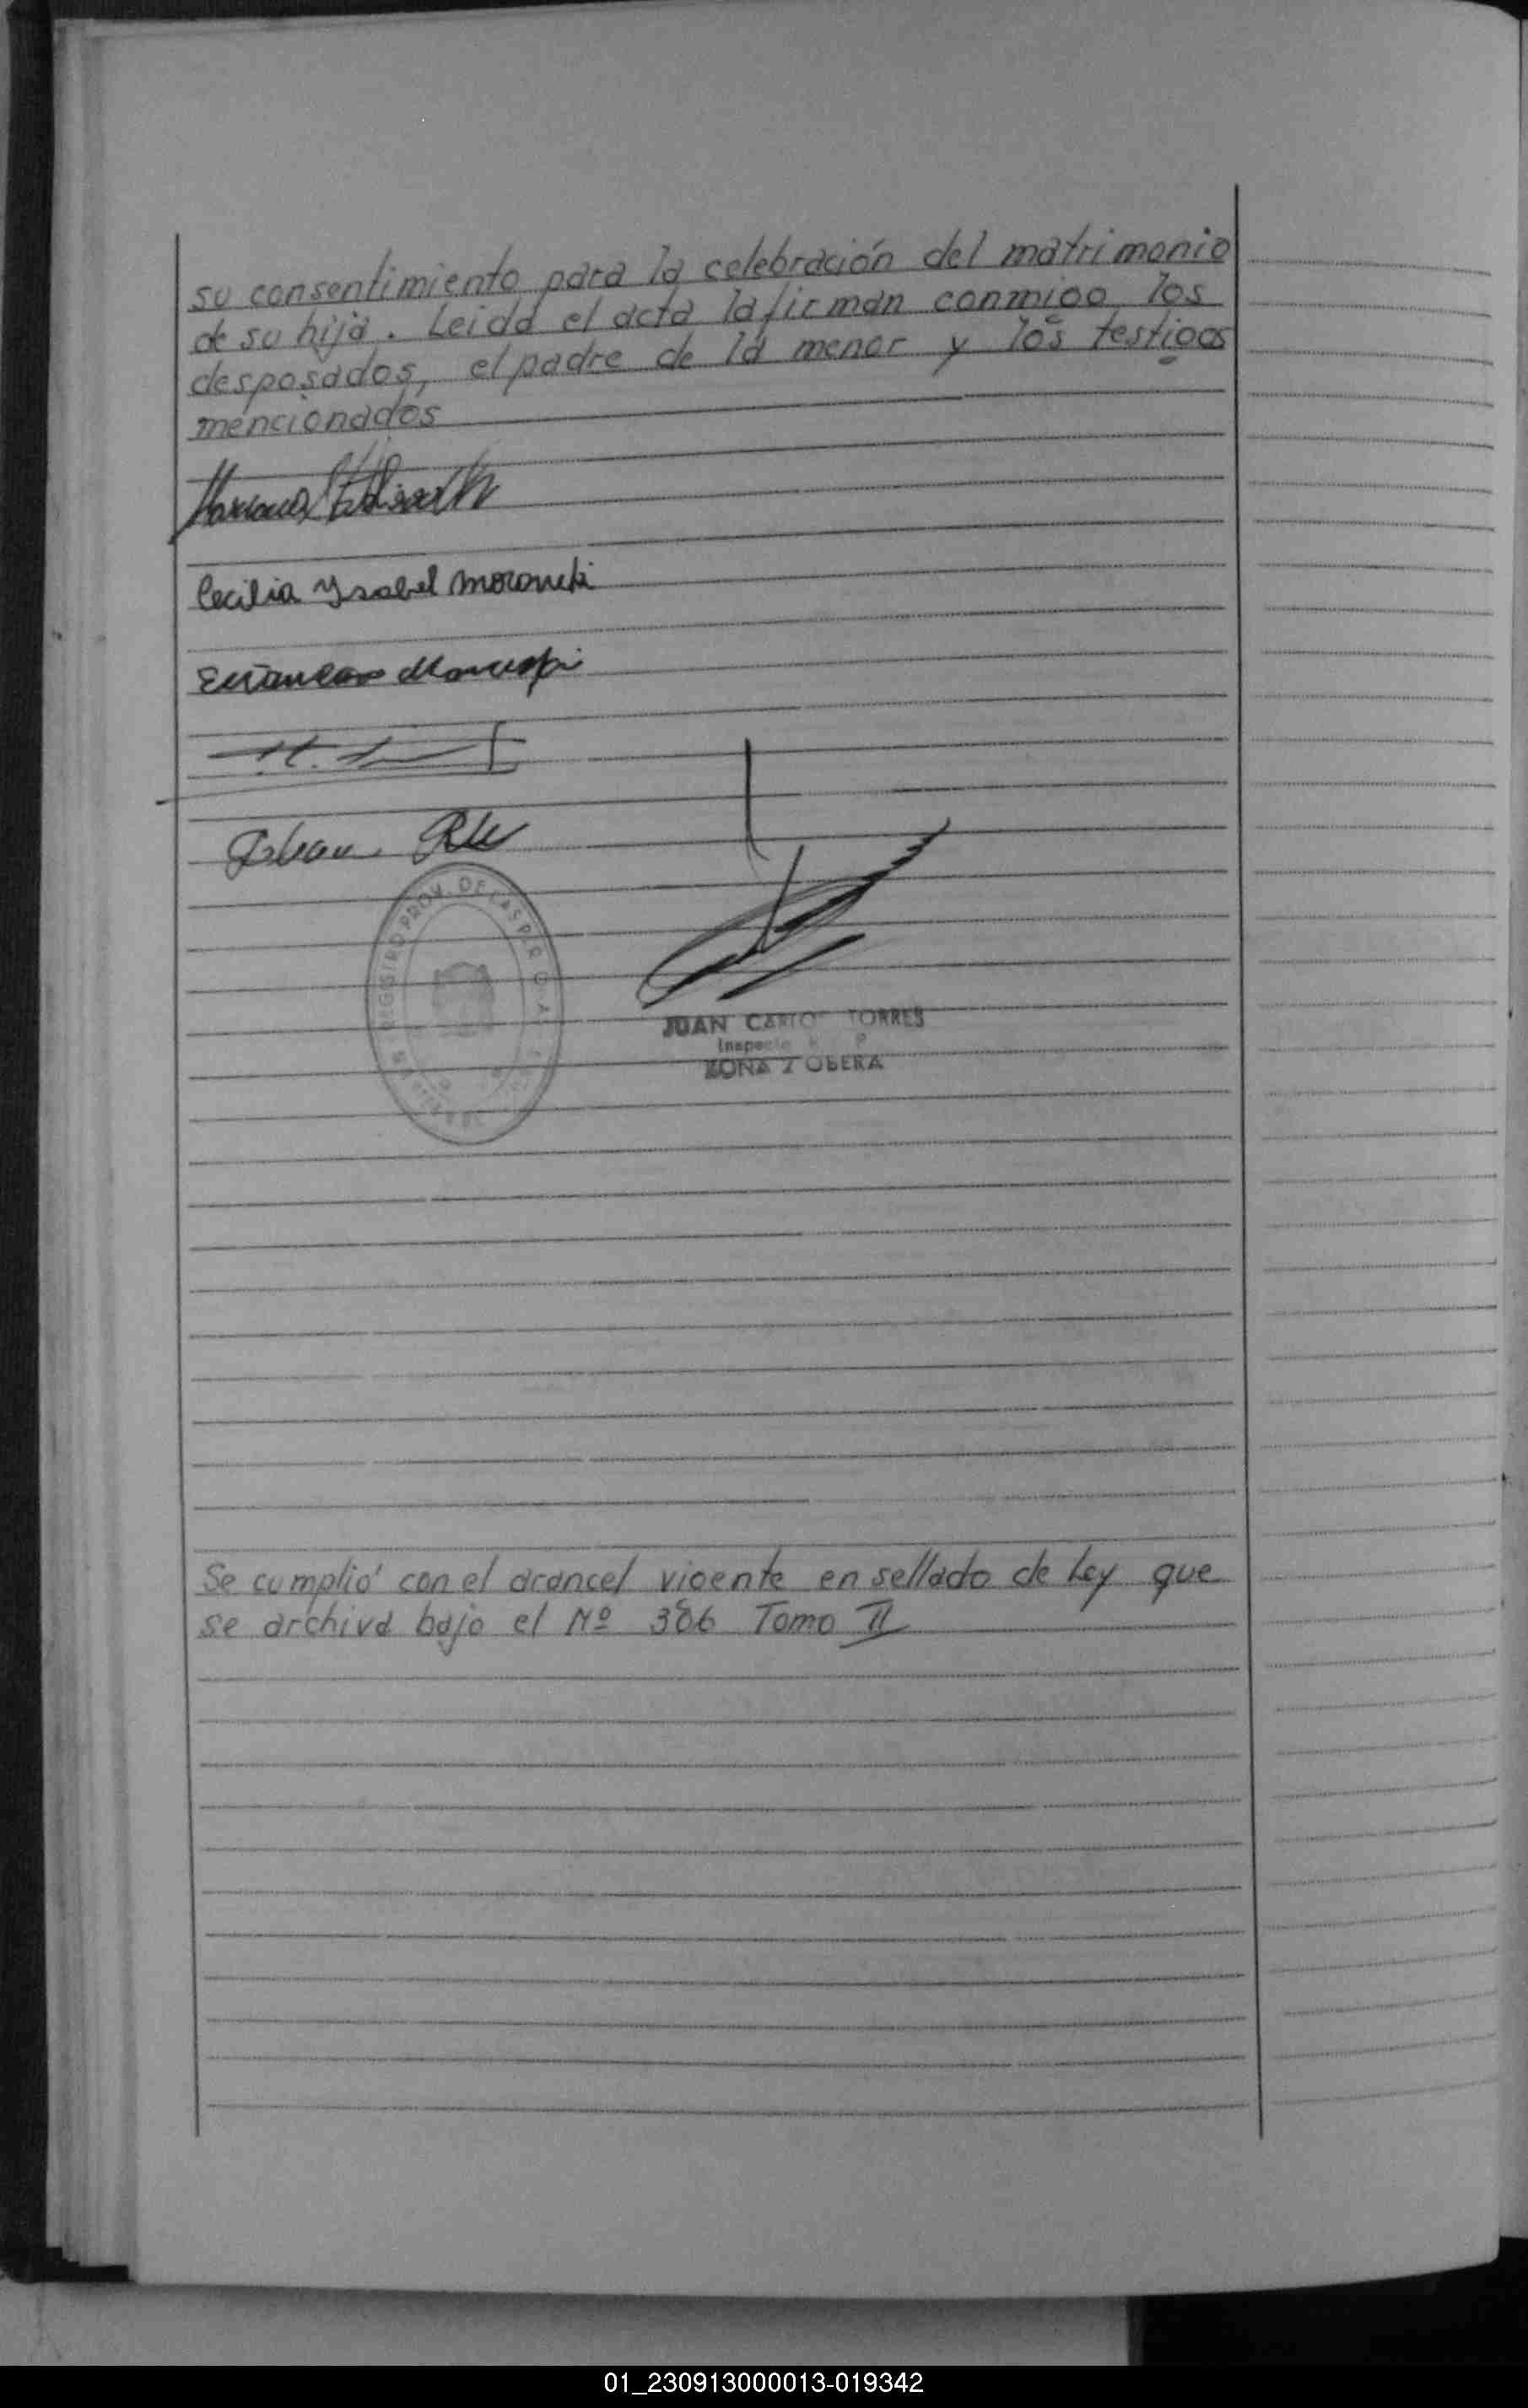 su consentimiento para la celebración del matrimonio
de su hija. Leida el acta la firman conmigo los
desposados, el padre de la menor y los testigos
mencionados
Cecilia Ysabel
REGISTRO PROV. DE LAS PER
JUAN CARLOS TORRES
ZONA OBERA
Se cumplió con el arancel vigente en sellado de Ley que
se archiva bajo el Nº 386 Tomo II
01_230913000013-019342